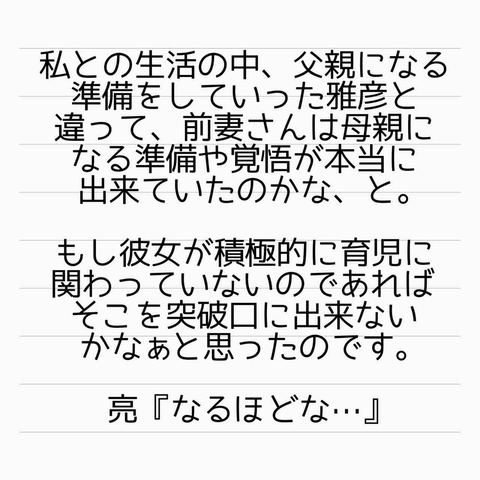 私との生活の中、父親になる
準備をしていった雅彦と
違って、前妻さんは母親に
なる準備や覚悟が本当に
出来ていたのかな、と。
もし彼女が積極的に育児に
関わっていないのであれば
そこを突破口に出来ない
かなぁと思ったのです。
亮『なるほどな…』